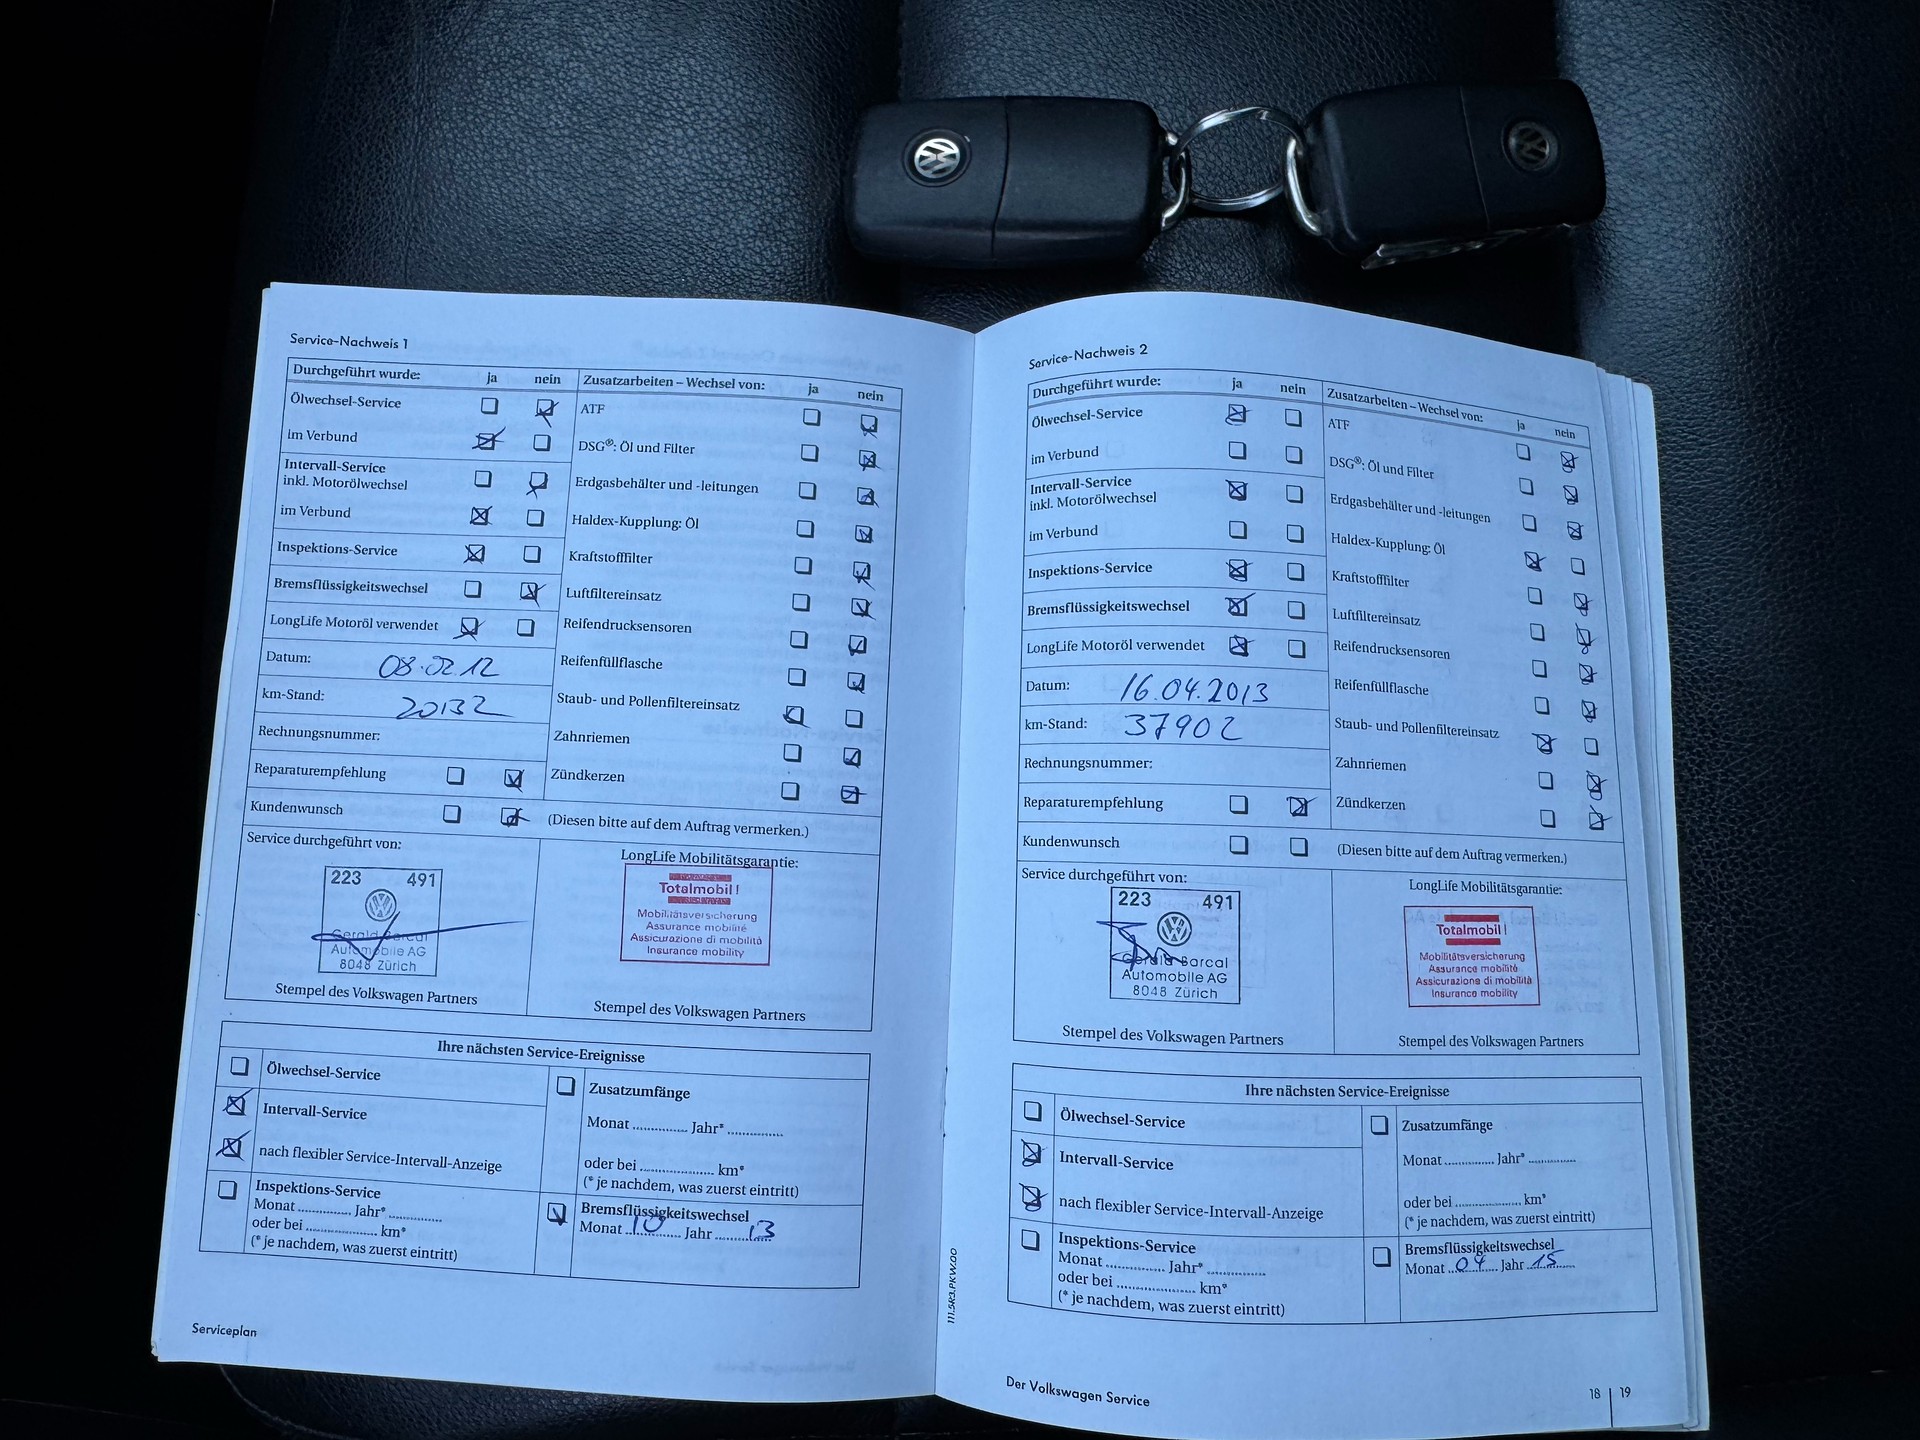 Service-Nachweis 1
Durchgeführt wurde: ja nein
Ölwechsel-Service
im Verbund
Intervall-Service
inkl. Motorölwechsel
im Verbund
Inspektions-Service
Bremsflüssigkeitswechsel
LongLife Motoröl verwendet
Datum: 08.02.12
km-Stand: 20132
Rechnungsnummer:
Reparaturempfehlung
Kundenwunsch
Zusatzarbeiten – Wechsel von: ja nein
ATF
DSG®: Öl und Filter
Erdgasbehälter und -leitungen
Haldex-Kupplung: Öl
Kraftstofffilter
Luftfiltereinsatz
Reifendrucksensoren
Reifenfüllflasche
Staub- und Pollenfiltereinsatz
Zahnriemen
Zündkerzen
(Diesen bitte auf dem Auftrag vermerken.)
Service durchgeführt von:
223 491
Gerald Barcal
Automobile AG
8048 Zürich
Stempel des Volkswagen Partners
LongLife Mobilitätsgarantie:
Totalmobil!
Mobilitätsversicherung
Assurance mobilité
Assicurazione di mobilità
Insurance mobility
Stempel des Volkswagen Partners
Ihre nächsten Service-Ereignisse
Ölwechsel-Service
Intervall-Service
nach flexibler Service-Intervall-Anzeige
Inspektions-Service
Monat .............. Jahr* ..............
oder bei .................. km*
(* je nachdem, was zuerst eintritt)
Zusatzumfänge
Monat .............. Jahr* ..............
oder bei .................. km*
(* je nachdem, was zuerst eintritt)
Bremsflüssigkeitswechsel
Monat 10 Jahr 13
Serviceplan
Service-Nachweis 2
Durchgeführt wurde: ja nein
Ölwechsel-Service
im Verbund
Intervall-Service
inkl. Motorölwechsel
im Verbund
Inspektions-Service
Bremsflüssigkeitswechsel
LongLife Motoröl verwendet
Datum: 16.04.2013
km-Stand: 37902
Rechnungsnummer:
Reparaturempfehlung
Kundenwunsch
Zusatzarbeiten – Wechsel von: ja nein
ATF
DSG®: Öl und Filter
Erdgasbehälter und -leitungen
Haldex-Kupplung: Öl
Kraftstofffilter
Luftfiltereinsatz
Reifendrucksensoren
Reifenfüllflasche
Staub- und Pollenfiltereinsatz
Zahnriemen
Zündkerzen
(Diesen bitte auf dem Auftrag vermerken.)
Service durchgeführt von:
223 491
Gerald Barcal
Automobile AG
8048 Zürich
Stempel des Volkswagen Partners
LongLife Mobilitätsgarantie:
Totalmobil!
Mobilitätsversicherung
Assurance mobilité
Assicurazione di mobilità
Insurance mobility
Stempel des Volkswagen Partners
Ihre nächsten Service-Ereignisse
Ölwechsel-Service
Intervall-Service
nach flexibler Service-Intervall-Anzeige
Inspektions-Service
Monat .............. Jahr* ..............
oder bei .................. km*
(* je nachdem, was zuerst eintritt)
Zusatzumfänge
Monat .............. Jahr* ..............
oder bei .................. km*
(* je nachdem, was zuerst eintritt)
Bremsflüssigkeitswechsel
Monat 04 Jahr 15
111.5R3.PKW.00
Der Volkswagen Service
18 | 19